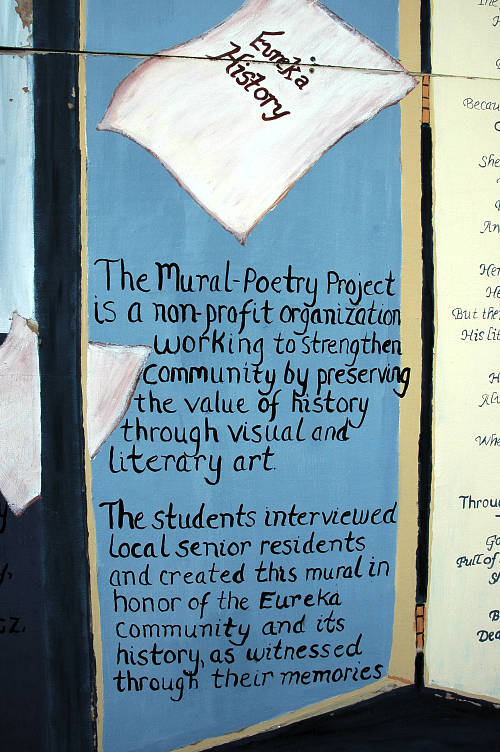 Eureka
History
The Mural-Poetry Project
is a non-profit organization
working to strengthen
community by preserving
the value of history
through visual and
literary art.
The students interviewed
local senior residents
and created this mural in
honor of the Eureka
community and its
history, as witnessed
through their memories
She
But the
His lit
Throu
Pull of